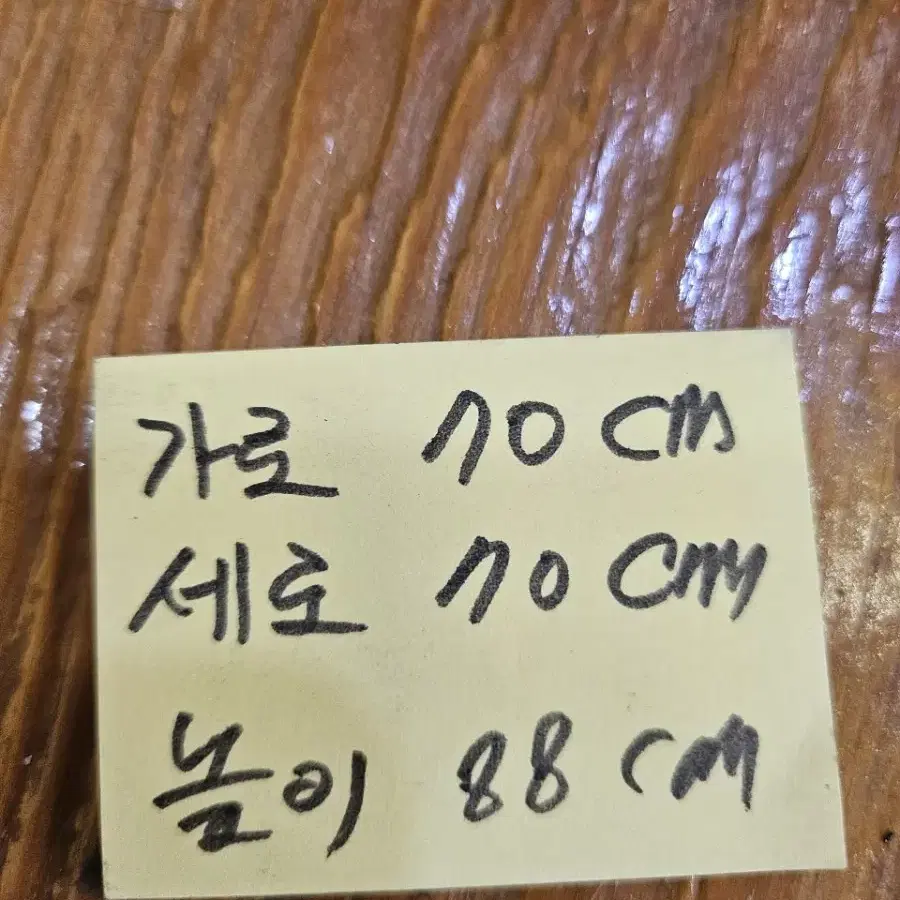 가로 70 cm
세로 70 cm
높이 88 cm